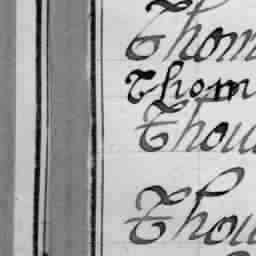 Thom
Thom
Thou
Thou